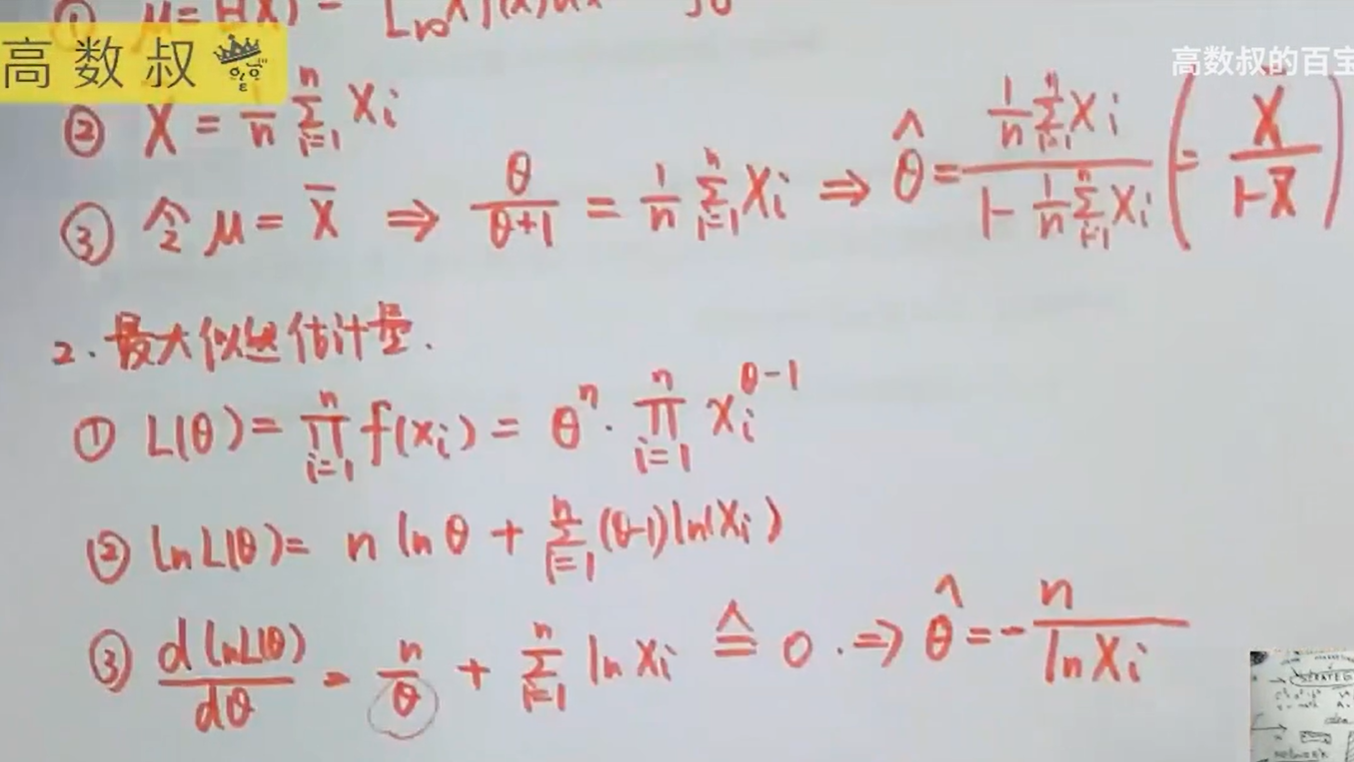 ① μ = E(X) =
高数叔
高数叔的百宝
② X̄ = 1/n ∑_{i=1}^{n} X_i
③ 令 μ = X̄ ⇒ θ/(θ+1) = 1/n ∑_{i=1}^{n} X_i ⇒ θ̂ = (1/n ∑_{i=1}^{n} X_i)/(1 - 1/n ∑_{i=1}^{n} X_i) (= X̄/(1-X̄))
2. 最大似然估计量.
① L(θ) = ∏_{i=1}^{n} f(x_i) = θ^n · ∏_{i=1}^{n} x_i^{θ-1}
② ln L(θ) = n ln θ + ∑_{i=1}^{n} (θ-1) ln(X_i)
③ d ln L(θ)/dθ = n/θ + ∑_{i=1}^{n} ln X_i ≙ 0 . ⇒ θ̂ = - n/ln X_i